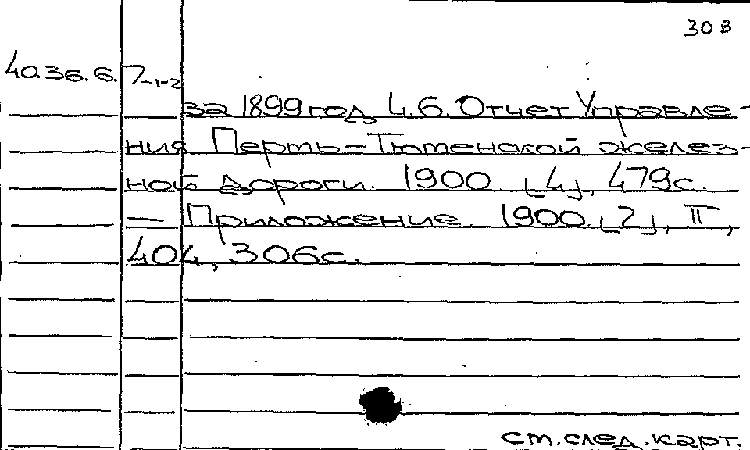 30 в
4036.6. 7-1-2
за 1899 год. Ч.6. Отчет Управле-
ния Пермь-Тюменской желез-
ной дороги. 1900. [4], 479с.
— Приложение. 1900. [2], II,
404, 306с.
ст.след.карт.